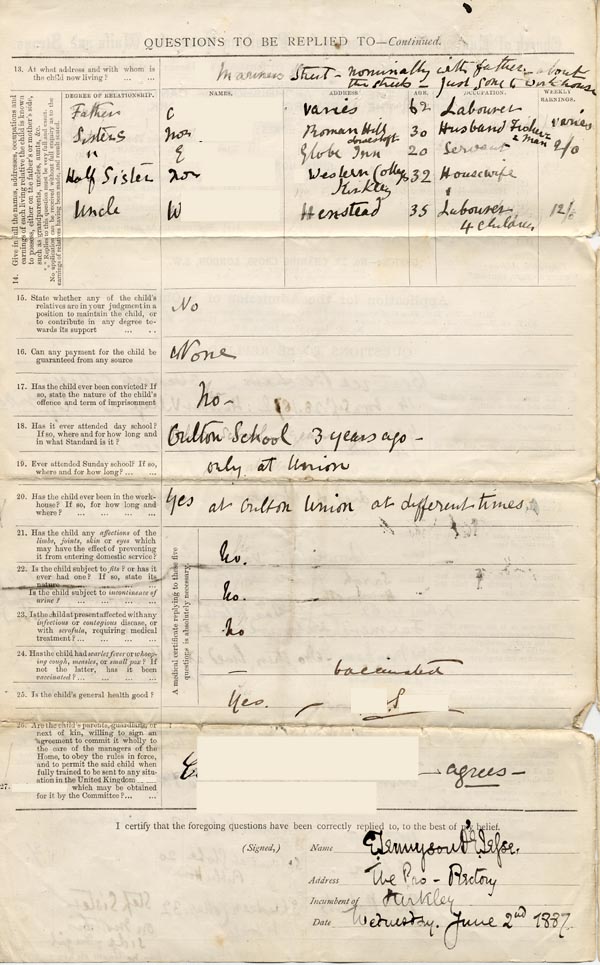 QUESTIONS TO BE REPLIED TO—Continued.
13. At what address and with whom is
the child now living? ... ...
Mariners Street – nominally with father – about
the streets – Just gone to workhouse
14. Give in full the names, addresses, occupations and
earnings of each living relative the child is known
to possess, either on the father's or mother's side,
such as grandparents, uncles, aunts, &c.
*** Replies to this question must be very full and exact.
No application can be received without full enquiry as to the
earnings of relatives having been made, and result stated.
DEGREE OF RELATIONSHIP. NAMES. ADDRESS AGE. OCCUPATION. WEEKLY EARNINGS.
Father C varies 62 Labourer varies
Sisters Roman Hill 30 Husband
" E Globe Inn 20 Servant 2/0
Half Sister Western Kirkley 32 Housewife
Uncle W Henstead 35 Labourer 12/
4 children
15. State whether any of the child's
relatives are in your judgment in a
position to maintain the child, or
to contribute in any degree to-
wards its support ... ..
No
16. Can any payment for the child be
guaranteed from any source
None
17. Has the child ever been convicted? If
so, state the nature of the child's
offence and term of imprisonment
No –
18. Has it ever attended day school?
If so, where and for how long and
in what Standard is it? ...
Oulton School 3 years ago –
19. Ever attended Sunday school? If so,
where and for how long? ... ...
only at Union
20. Has the child ever been in the work-
house? If so, for how long and
where? ... ... ...
Yes at Oulton Union at different times
A medical certificate replying to these five
questions is absolutely necessary.
21. Has the child any affections of the
limbs, joints, skin or eyes which
may have the effect of preventing
it from entering domestic service?
No.
22. Is the child subject to fits? or has it
ever had one? If so, state its
nature
Is the child subject to incontinence of
urine? ... ... ...
No.
23. Is the child at present affected with any
infectious or contagious disease, or
with scrofula, requiring medical
treatment? ... ... ...
No
24. Has the child had scarlet fever or whoop-
ing cough, measles, or small pox? If
not the latter, has it been
vaccinated? ... ... ...
— vaccinated
25. Is the child's general health good?
Yes. – S
26. Are the child's parents, guardians, or
next of kin, willing to sign an
agreement to commit it wholly to
the care of the managers of the
Home, to obey the rules in force,
and to permit the said child when
fully trained to be sent to any situ-
ation in the United Kingdom
27. which may be obtained
for it by the Committee? ...
– agrees –
I certify that the foregoing questions have been correctly replied to, to the best of my belief.
(Signed,) Name
Address The Pro – Rectory
Incumbent of Kirkley
Date Wednesday. June 2nd 1887.